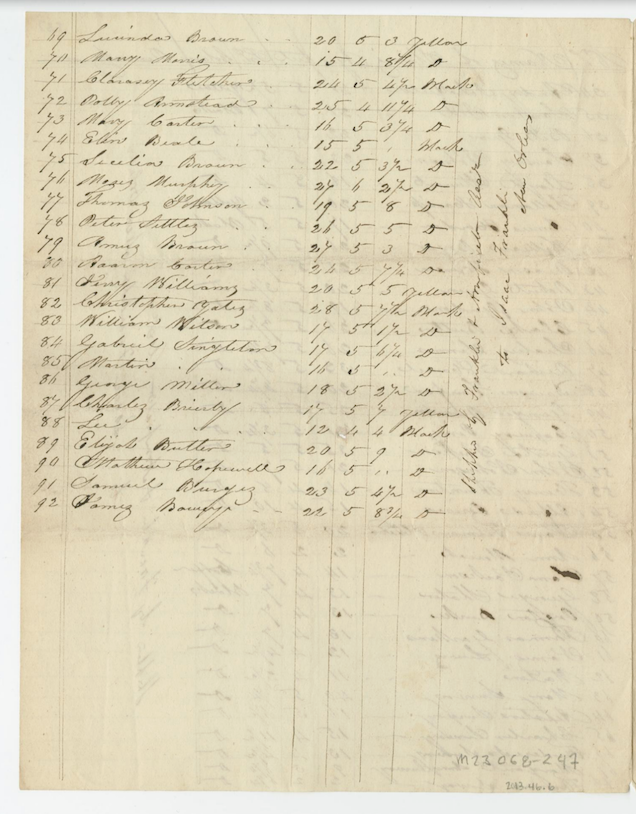 69 Lucinda Brown . . 20 5 3 Yellow
70 Mary Morris . . 15 4 8 1/4 D
71 Clarasey Fletcher 24 5 4 1/2 Black
72 Dolly Armstead . . 25 4 11 1/4 D
73 Mary Carter . . 16 5 3 1/4 D
74 Ellen Beale . . 15 5 " Black
75 Lucelia Brown . . 22 5 3 1/2 D
76 Moses Murphy 27 6 2 1/2 D
77 Thomas Johnson . 19 5 8 D
78 Peter 26 5 5 D
79 Brown . 27 5 3 D
80 Aaron Carter . 26 5 7 1/4 Do
81 Williams . 20 5 5 Yellow
82 Christopher Yates 28 5 7 1/2 Black
83 William Wilson 17 5 1 1/2 D
84 Gabriel Singleton 17 5 6 1/4 D
85 Martin . . 16 5 " D
86 George Miller . 18 5 2 1/2 D
87 Charles Brierly 17 5 7 Yellow
88 Lee . . . 12 4 4 Black
89 Elijah Butler . 20 5 9 D
90 Mathew Hopewell 16 5 " D
91 Samuel Burges 23 5 4 1/2 D
92 James 22 5 8 3/4 D
Shipped by Franklin &
to Isaac Franklin
New Orleans
M23068-247
2013.46.6